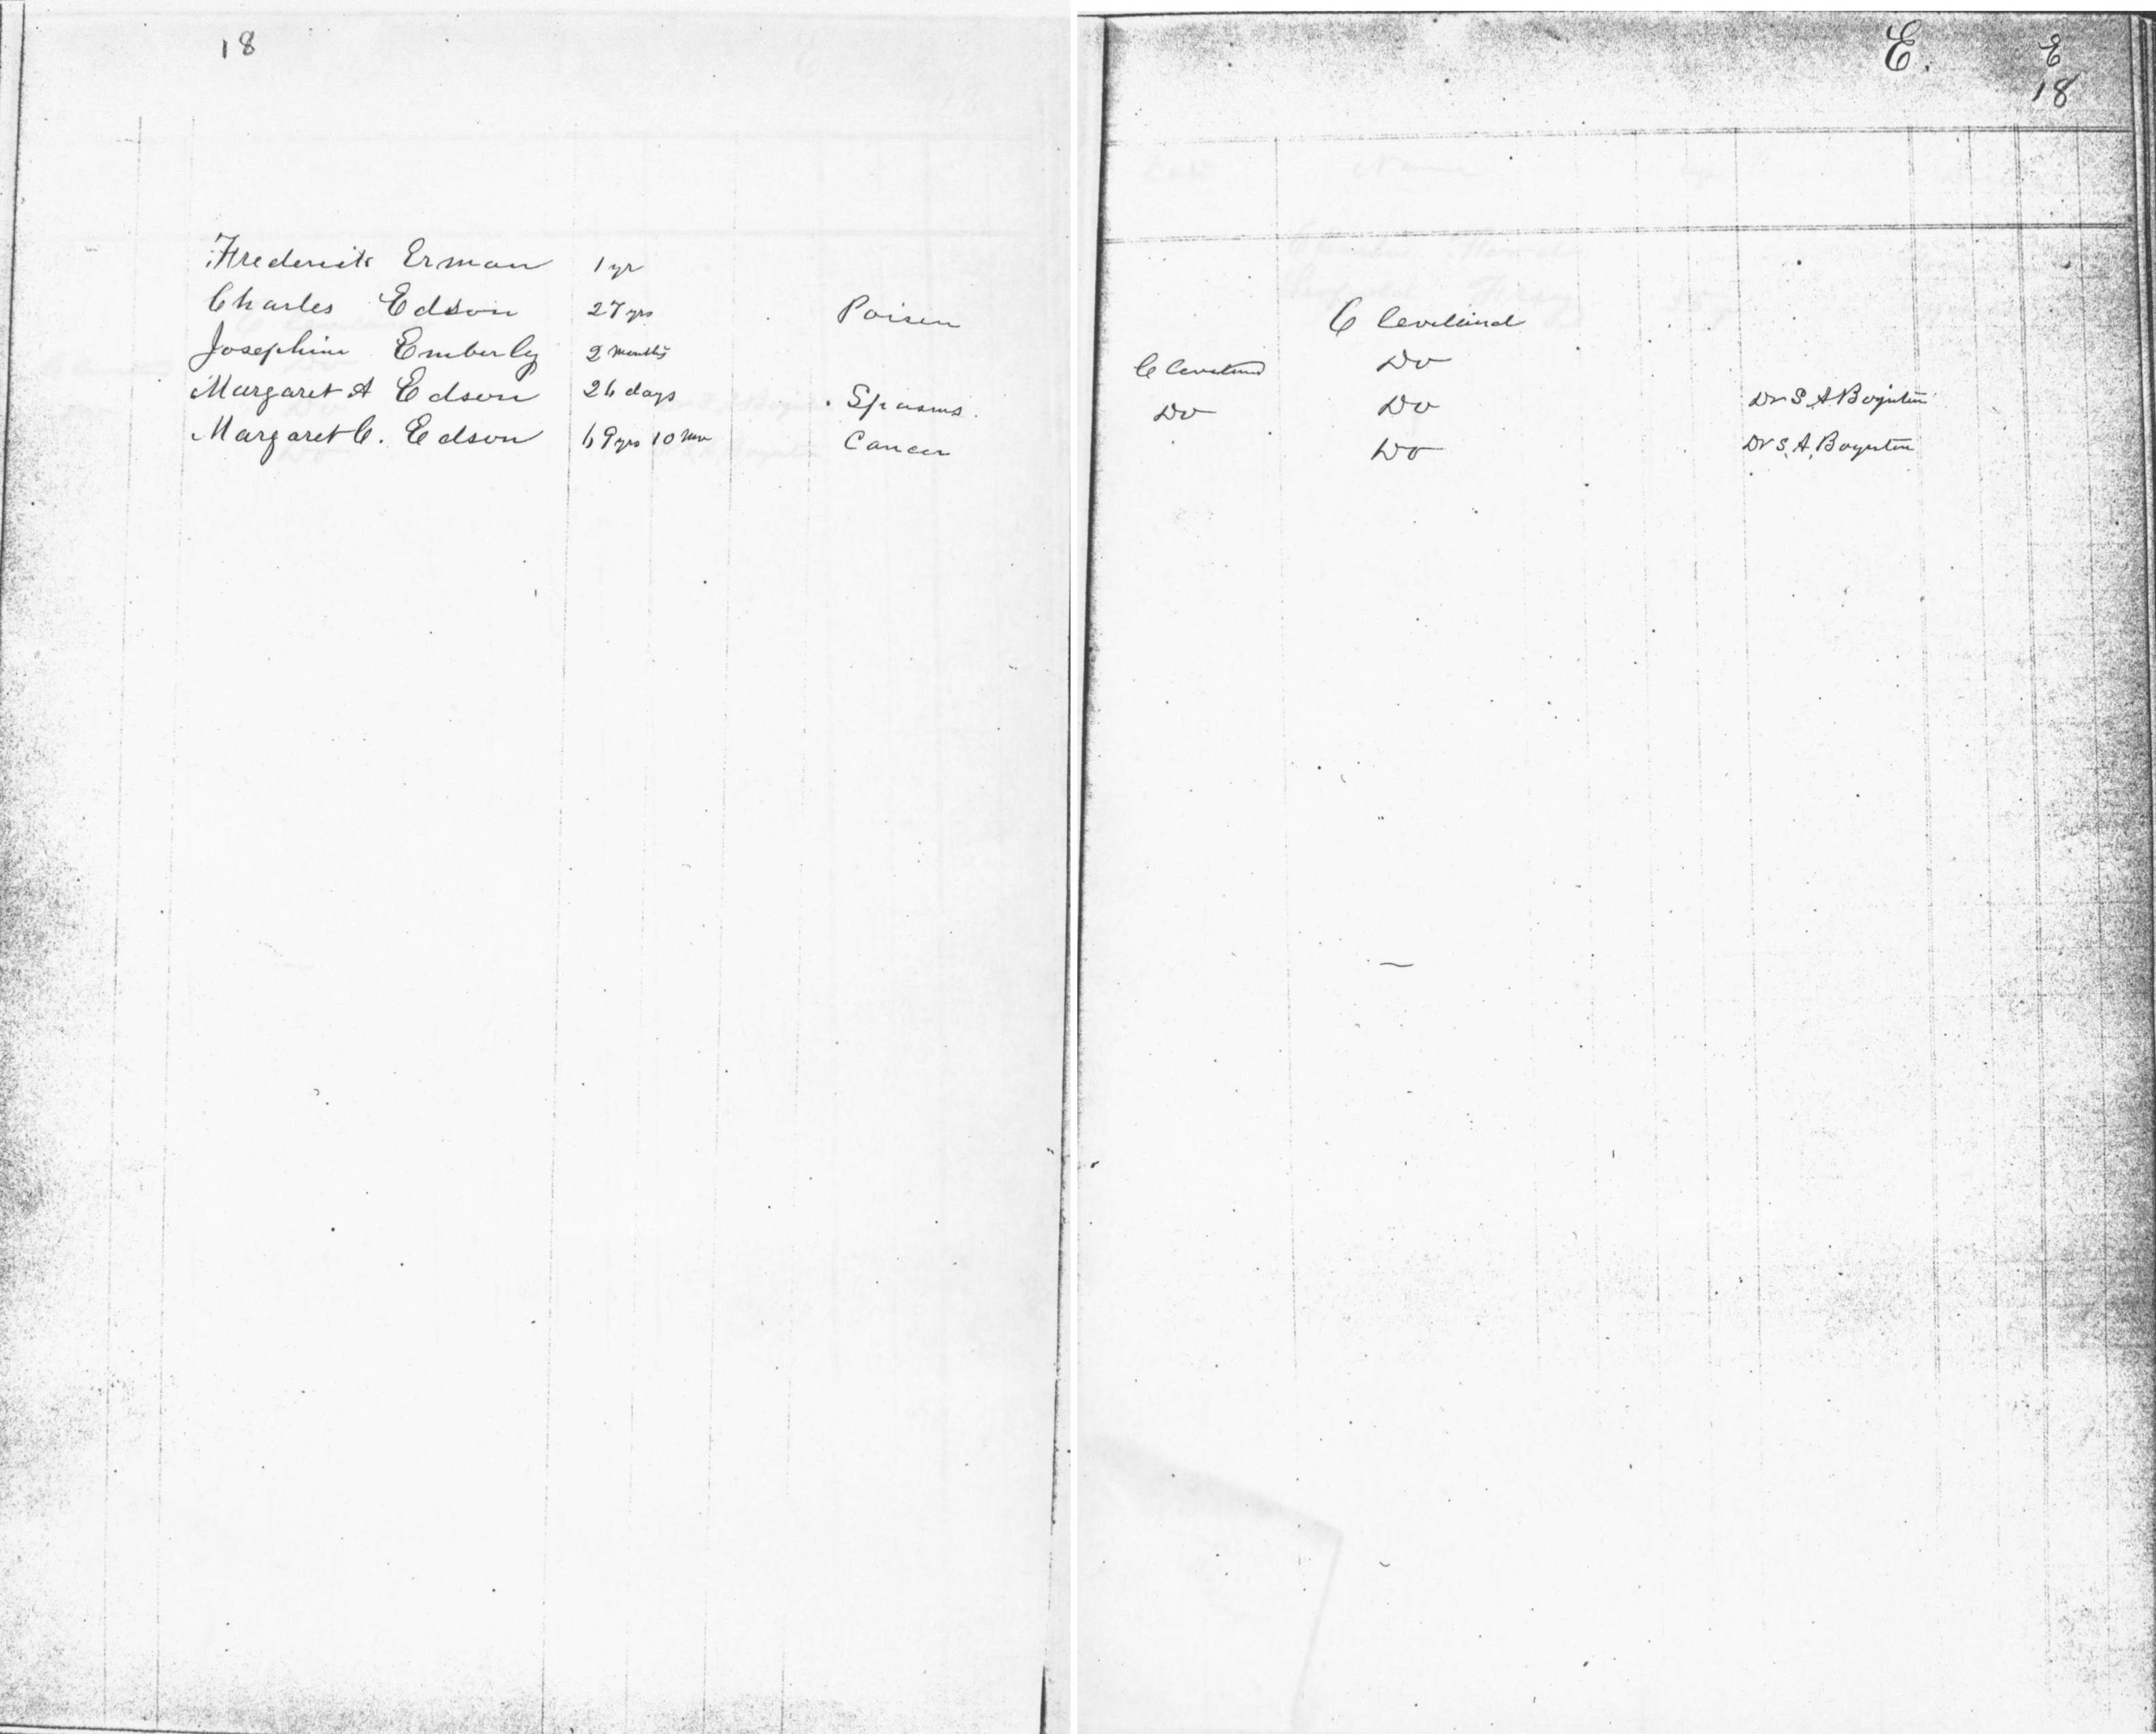 18
Frederick Erman 1 yr
Charles Edson 27 yrs Poisen
Josephine Emberly 2 months
Margaret A Edson 26 days Spasms.
Margaret C. Edson 69 yrs 10 mo Cancer
E. E
18
Cleveland
Cleveland Do
Do Do Dr S. A Boynton
Do Dr S. A. Boynton